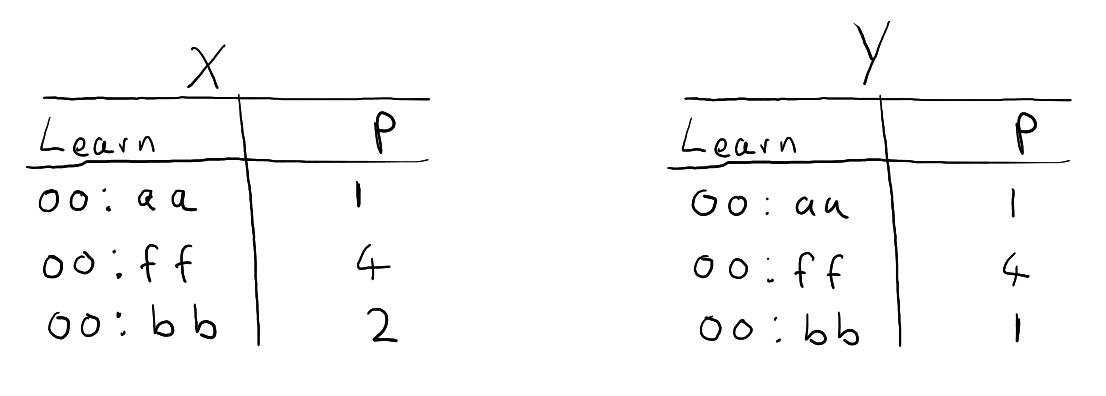 X
Learn P
00:aa 1
00:ff 4
00:bb 2
Y
Learn P
00:aa 1
00:ff 4
00:bb 1